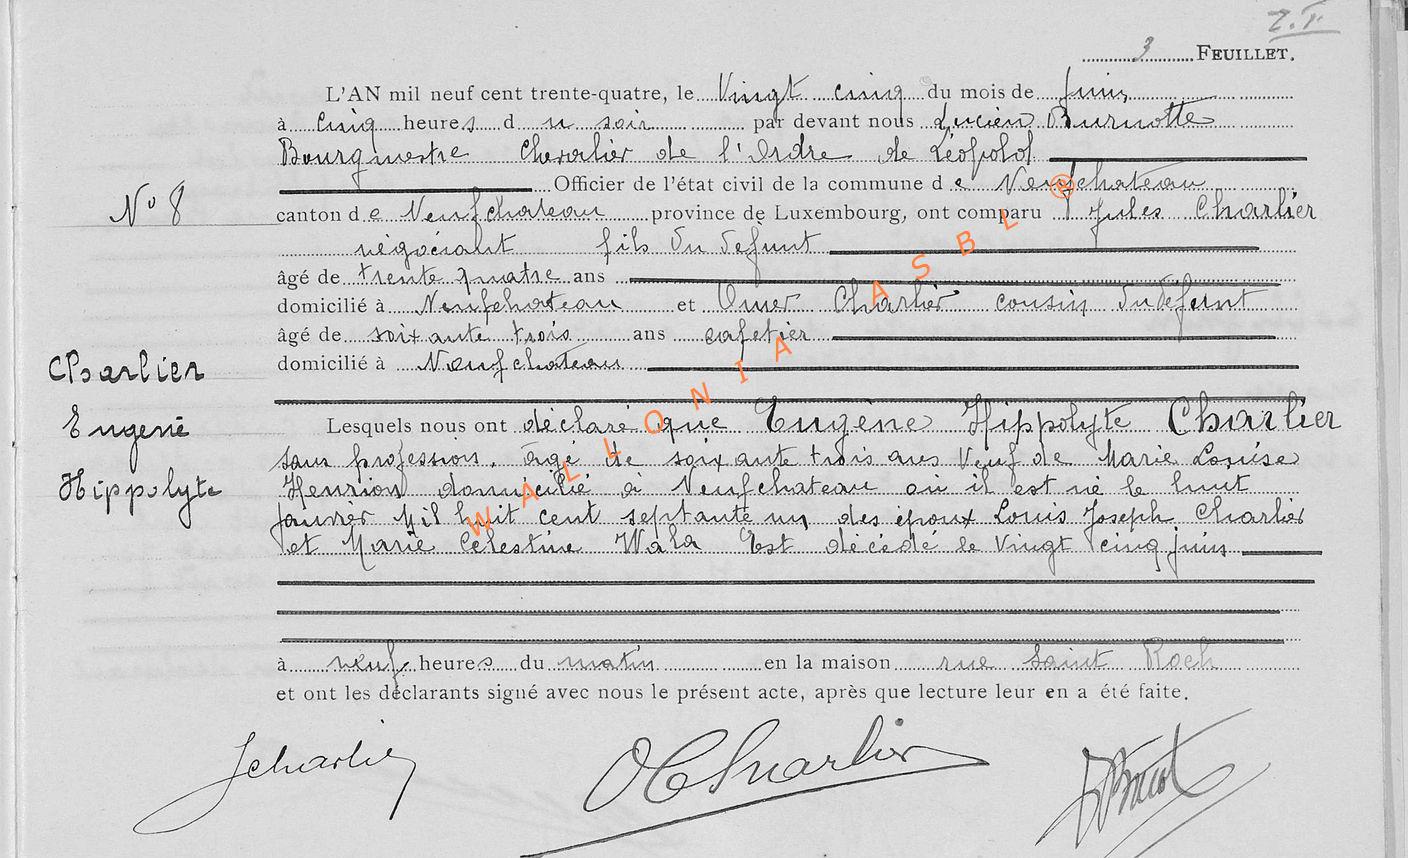 3 FEUILLET.
L'AN mil neuf cent trente-quatre, le Vingt cinq du mois de juin
à cinq heures du soir par devant nous Lucien Burnotte
Bourgmestre Chevalier de l'Ordre de Léopold
Officier de l'état civil de la commune de Neufchateau
N° 8
canton de Neufchateau province de Luxembourg, ont comparu Jules Charlier
négociant fils du défunt
âgé de trente quatre ans
domicilié à Neufchateau et Omer Charlier cousin du défunt
âgé de soixante trois ans cafetier
domicilié à Neufchateau
Charlier
Eugène
Hippolyte
Lesquels nous ont déclaré que Eugène Hippolyte Charlier
sans profession, âgé de soixante trois ans Veuf de Marie Louise
Henrion domicilié à Neufchateau où il est né le huit
janvier Mil huit cent septante un des époux Louis Joseph Charlier
et Marie Célestine Wala Est décédé le Vingt cinq juin
à neuf heures du matin en la maison rue Saint Roch
et ont les déclarants signé avec nous le présent acte, après que lecture leur en a été faite.
JCharlier
OCharlier
WALLONIA ASBL ®